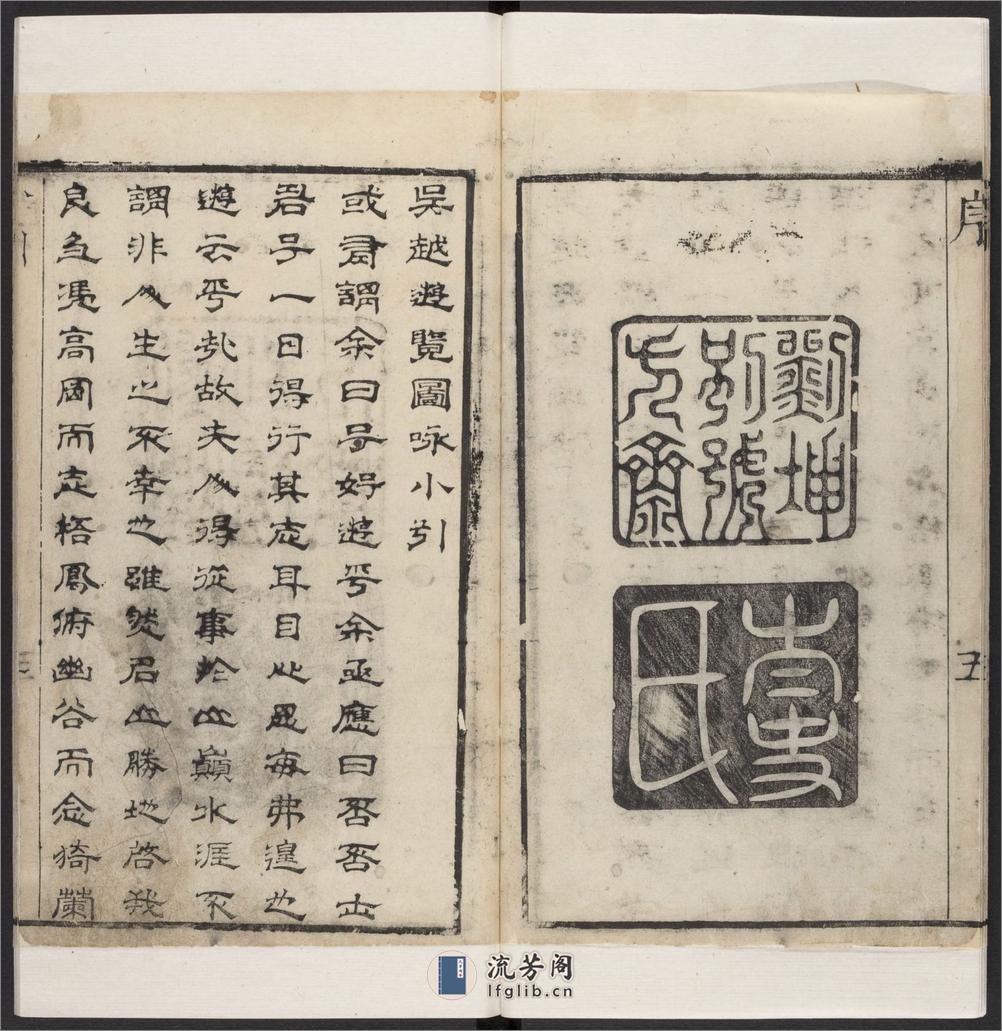 序
五
劉坤
別號
齋
史
氏
吳越遊覽圖咏小引
或有謂余曰子好遊乎余亟應曰否否士
君子一日得行其志耳目心思每弗遑也
遊云乎哉故夫人得從事於山巔水涯不
謂非人生之不幸也雖然名山勝地啓我
良多憑高岡而志梧鳳俯幽谷而念猗蘭
流芳阁
lfglib.cn